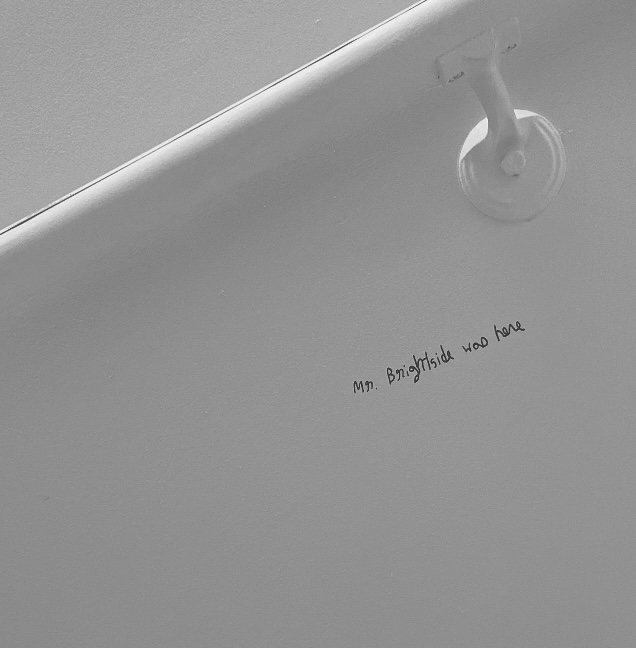 Mr. Brightside was here